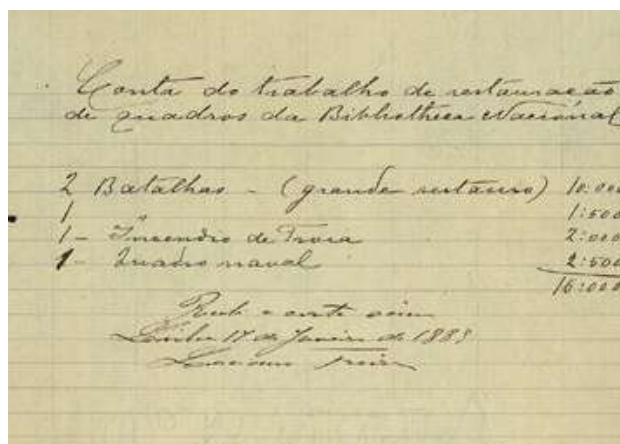 Conta do trabalho de restauração
de quadros da Bibliotheca Nacional
2 Batalhas - (grande restauro) 10:000
1 1:500
1 - Incendio de Troia 2:000
1 - Quadro naval 2:500
16:000
Recebi a conta acima
Lisboa 17 de Janeiro de 1885
Luciano Freire